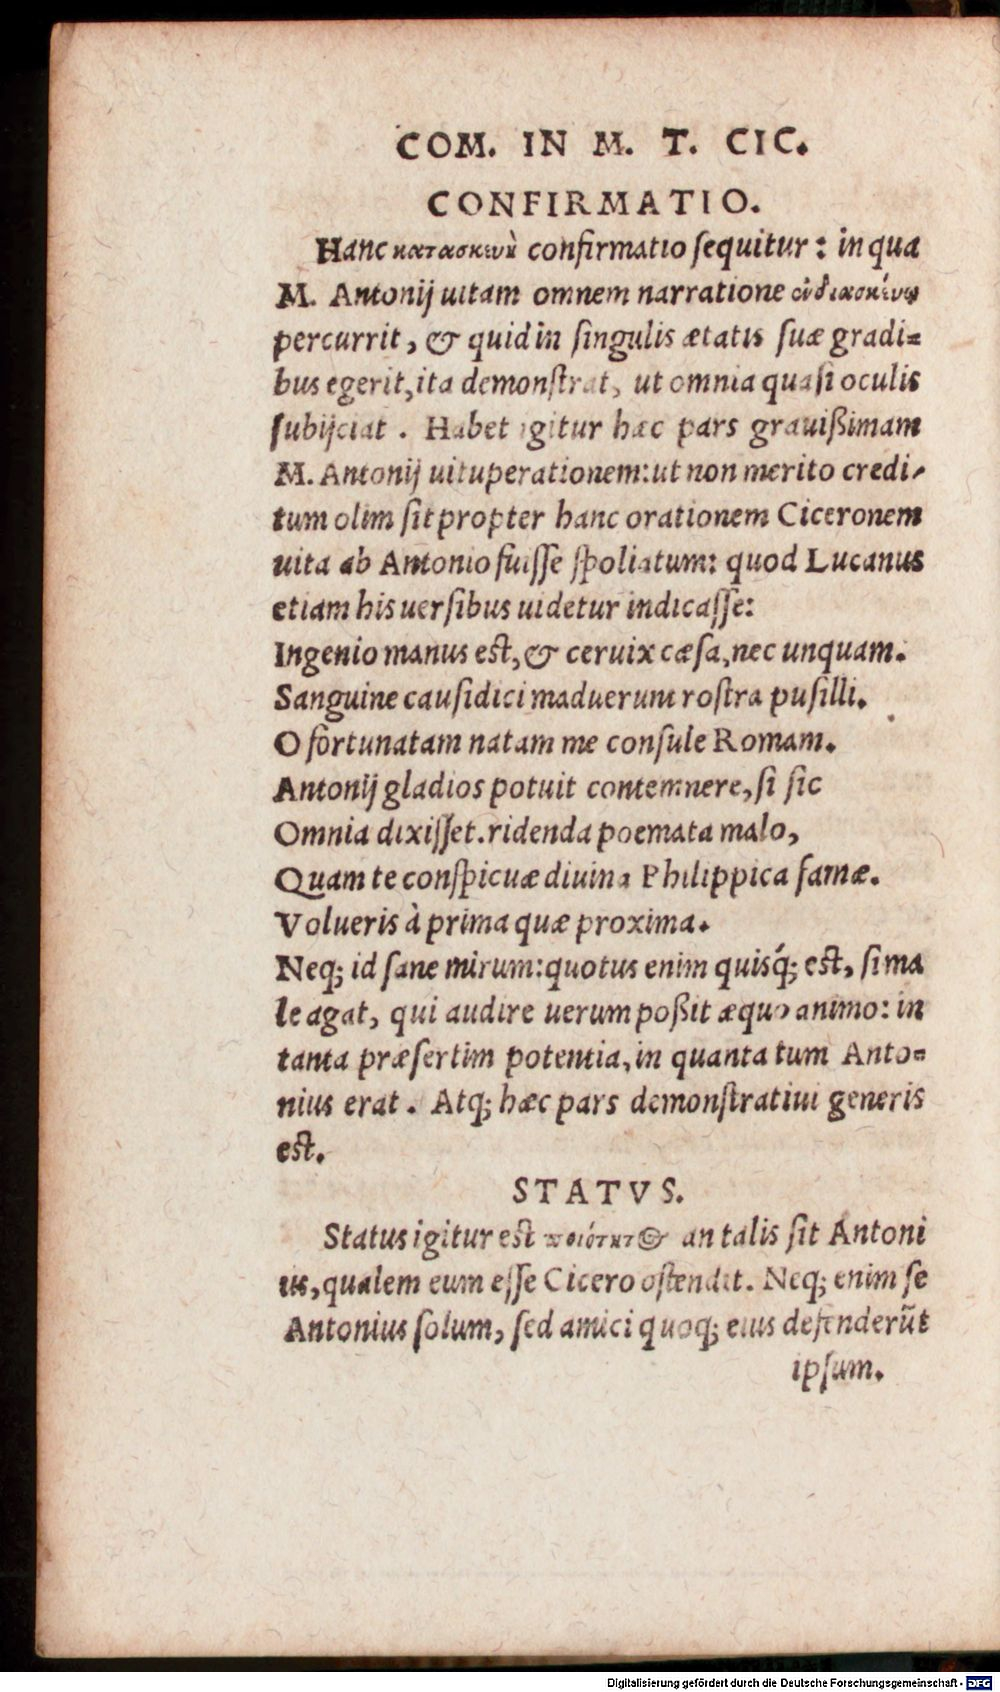 COM. IN M. T. CIC.
CONFIRMATIO.
Hanc κατασκευὴ confirmatio sequitur: in qua
M. Antonij uitam omnem narratione
percurrit, & quid in singulis ætatis suæ gradi=
bus egerit, ita demonstrat, ut omnia quasi oculis
subijciat. Habet igitur hæc pars grauißimam
M. Antonij uituperationem: ut non merito credi-
tum olim sit propter hanc orationem Ciceronem
uita ab Antonio fuisse spoliatum: quod Lucanus
etiam his uersibus uidetur indicasse:
Ingenio manus est, & ceruix cæsa, nec unquam.
Sanguine causidici maduerunt rostra pusilli.
O fortunatam natam me consule Romam.
Antonij gladios potuit contemnere, si sic
Omnia dixisset. ridenda poemata malo,
Quam te conspicuæ diuina Philippica famæ.
Volueris à prima quæ proxima.
Neq; id sane mirum: quotus enim quisq́; est, si ma
le agat, qui audire uerum poßit æquo animo: in
tanta præsertim potentia, in quanta tum Anto=
nius erat. Atq; hæc pars demonstratiui generis
est.
STATVS.
Status igitur est ποιότητος an talis sit Antoni
us, qualem eum esse Cicero ostendit. Neq; enim se
Antonius solum, sed amici quoq; eius defenderũt
ipsum.
Digitalisierung gefördert durch die Deutsche Forschungsgemeinschaft - DFG